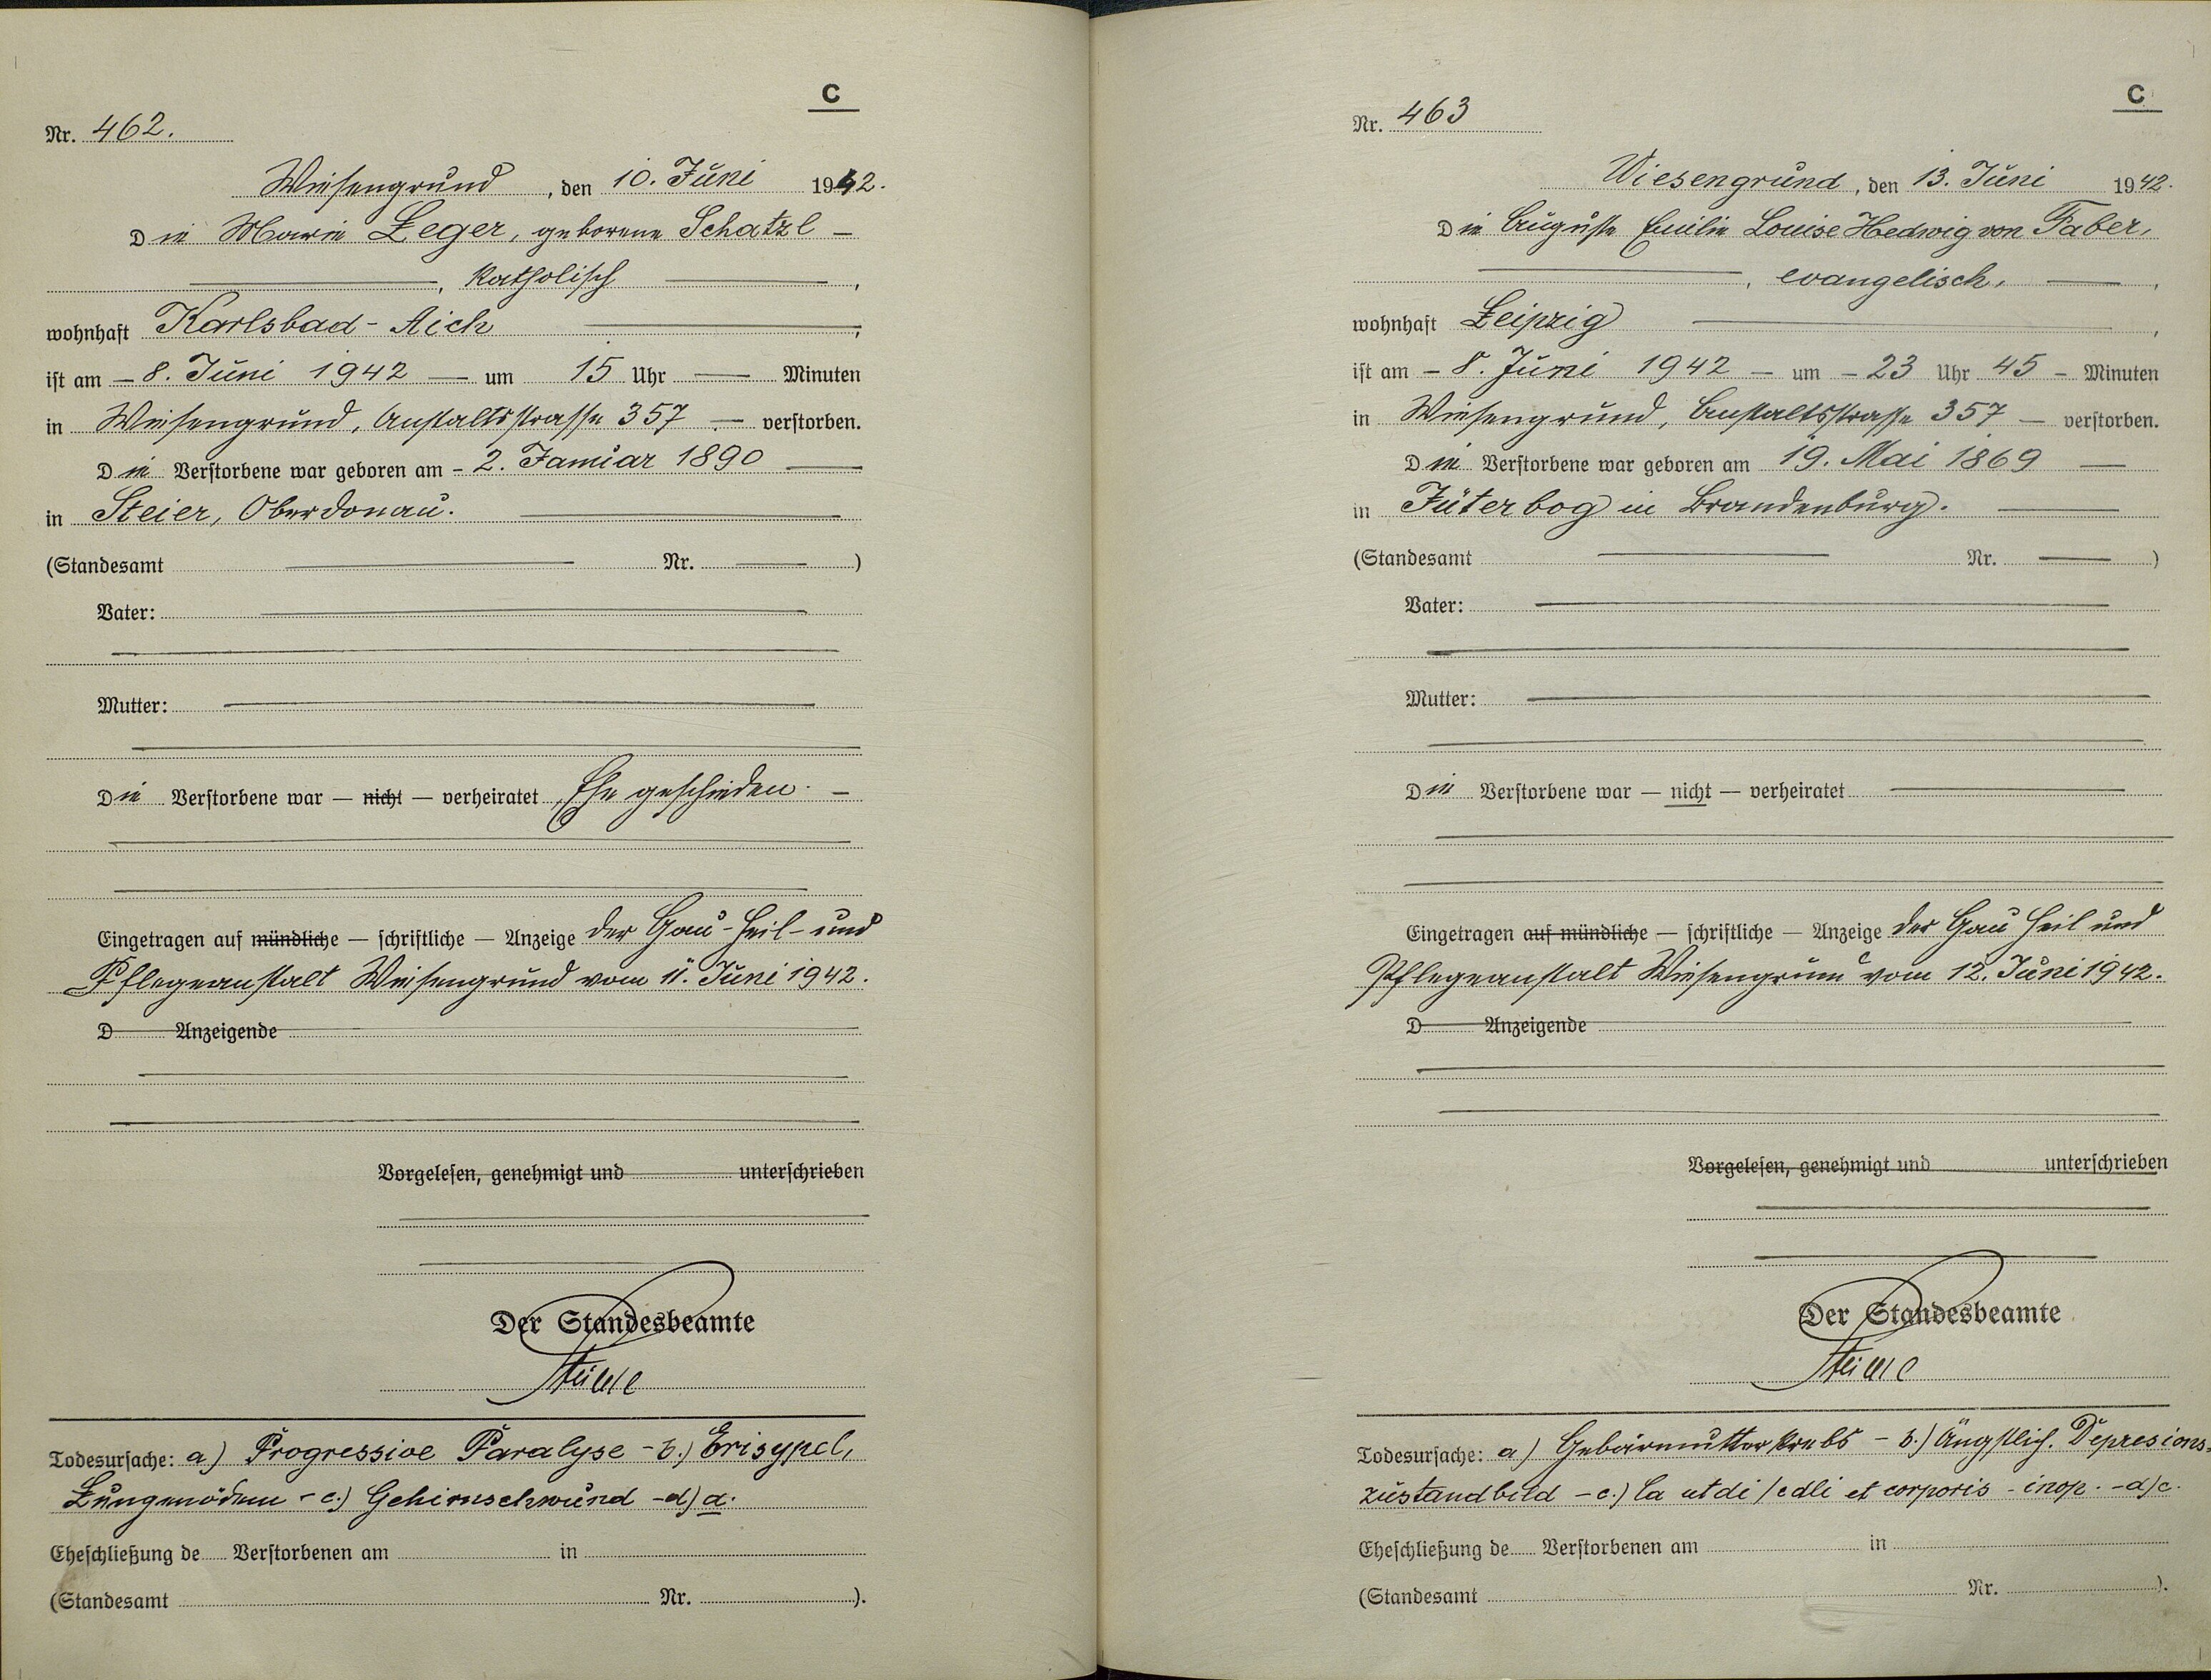 C
Nr. 462.
Wiesengrund, den 10. Juni 1942.
Die Marie Leger, geborene Schatzl —
—, katholisch —,
wohnhaft Karlsbad - Aich —,
ist am — 8. Juni 1942 — um 15 Uhr — Minuten
in Wiesengrund, Anstaltsstrasse 357 — verstorben.
Die Verstorbene war geboren am - 2. Januar 1890 —
in Steier, Oberdonau. —
(Standesamt — Nr. —)
Vater: —
Mutter: —
Die Verstorbene war — nicht — verheiratet Ehe geschieden. —
Eingetragen auf mündliche — schriftliche — Anzeige der Gau-Heil- und
Pflegeanstalt Wiesengrund vom 11. Juni 1942.
D Anzeigende
Vorgelesen, genehmigt und unterschrieben
Der Standesbeamte
Todesursache: a) Progressive Paralyse - b.) Erisypel,
Lungenödem - c.) Gehirnschwund - d) a.
Eheschließung de Verstorbenen am in
(Standesamt Nr. ).
C
Nr. 463
Wiesengrund, den 13. Juni 1942.
Die Auguste Emilie Louise Hedwig von Faber,
—, evangelisch, —,
wohnhaft Leipzig —,
ist am — 8. Juni 1942 — um — 23 Uhr 45 — Minuten
in Wiesengrund, Anstaltsstrasse 357 — verstorben.
Die Verstorbene war geboren am 19. Mai 1869 —
in Jüterbog in Brandenburg. —
(Standesamt — Nr. —)
Vater: —
Mutter: —
Die Verstorbene war — nicht — verheiratet —
Eingetragen auf mündliche — schriftliche — Anzeige der Gau Heil und
Pflegeanstalt Wiesengrund vom 12. Juni 1942.
D Anzeigende
Vorgelesen, genehmigt und unterschrieben
Der Standesbeamte
Todesursache: a) Gebärmutterkrebs - b.) Ängstlich. Depresions-
zustandbild - c.) et corporis - inop. - d) c.
Eheschließung de Verstorbenen am in
(Standesamt Nr. ).